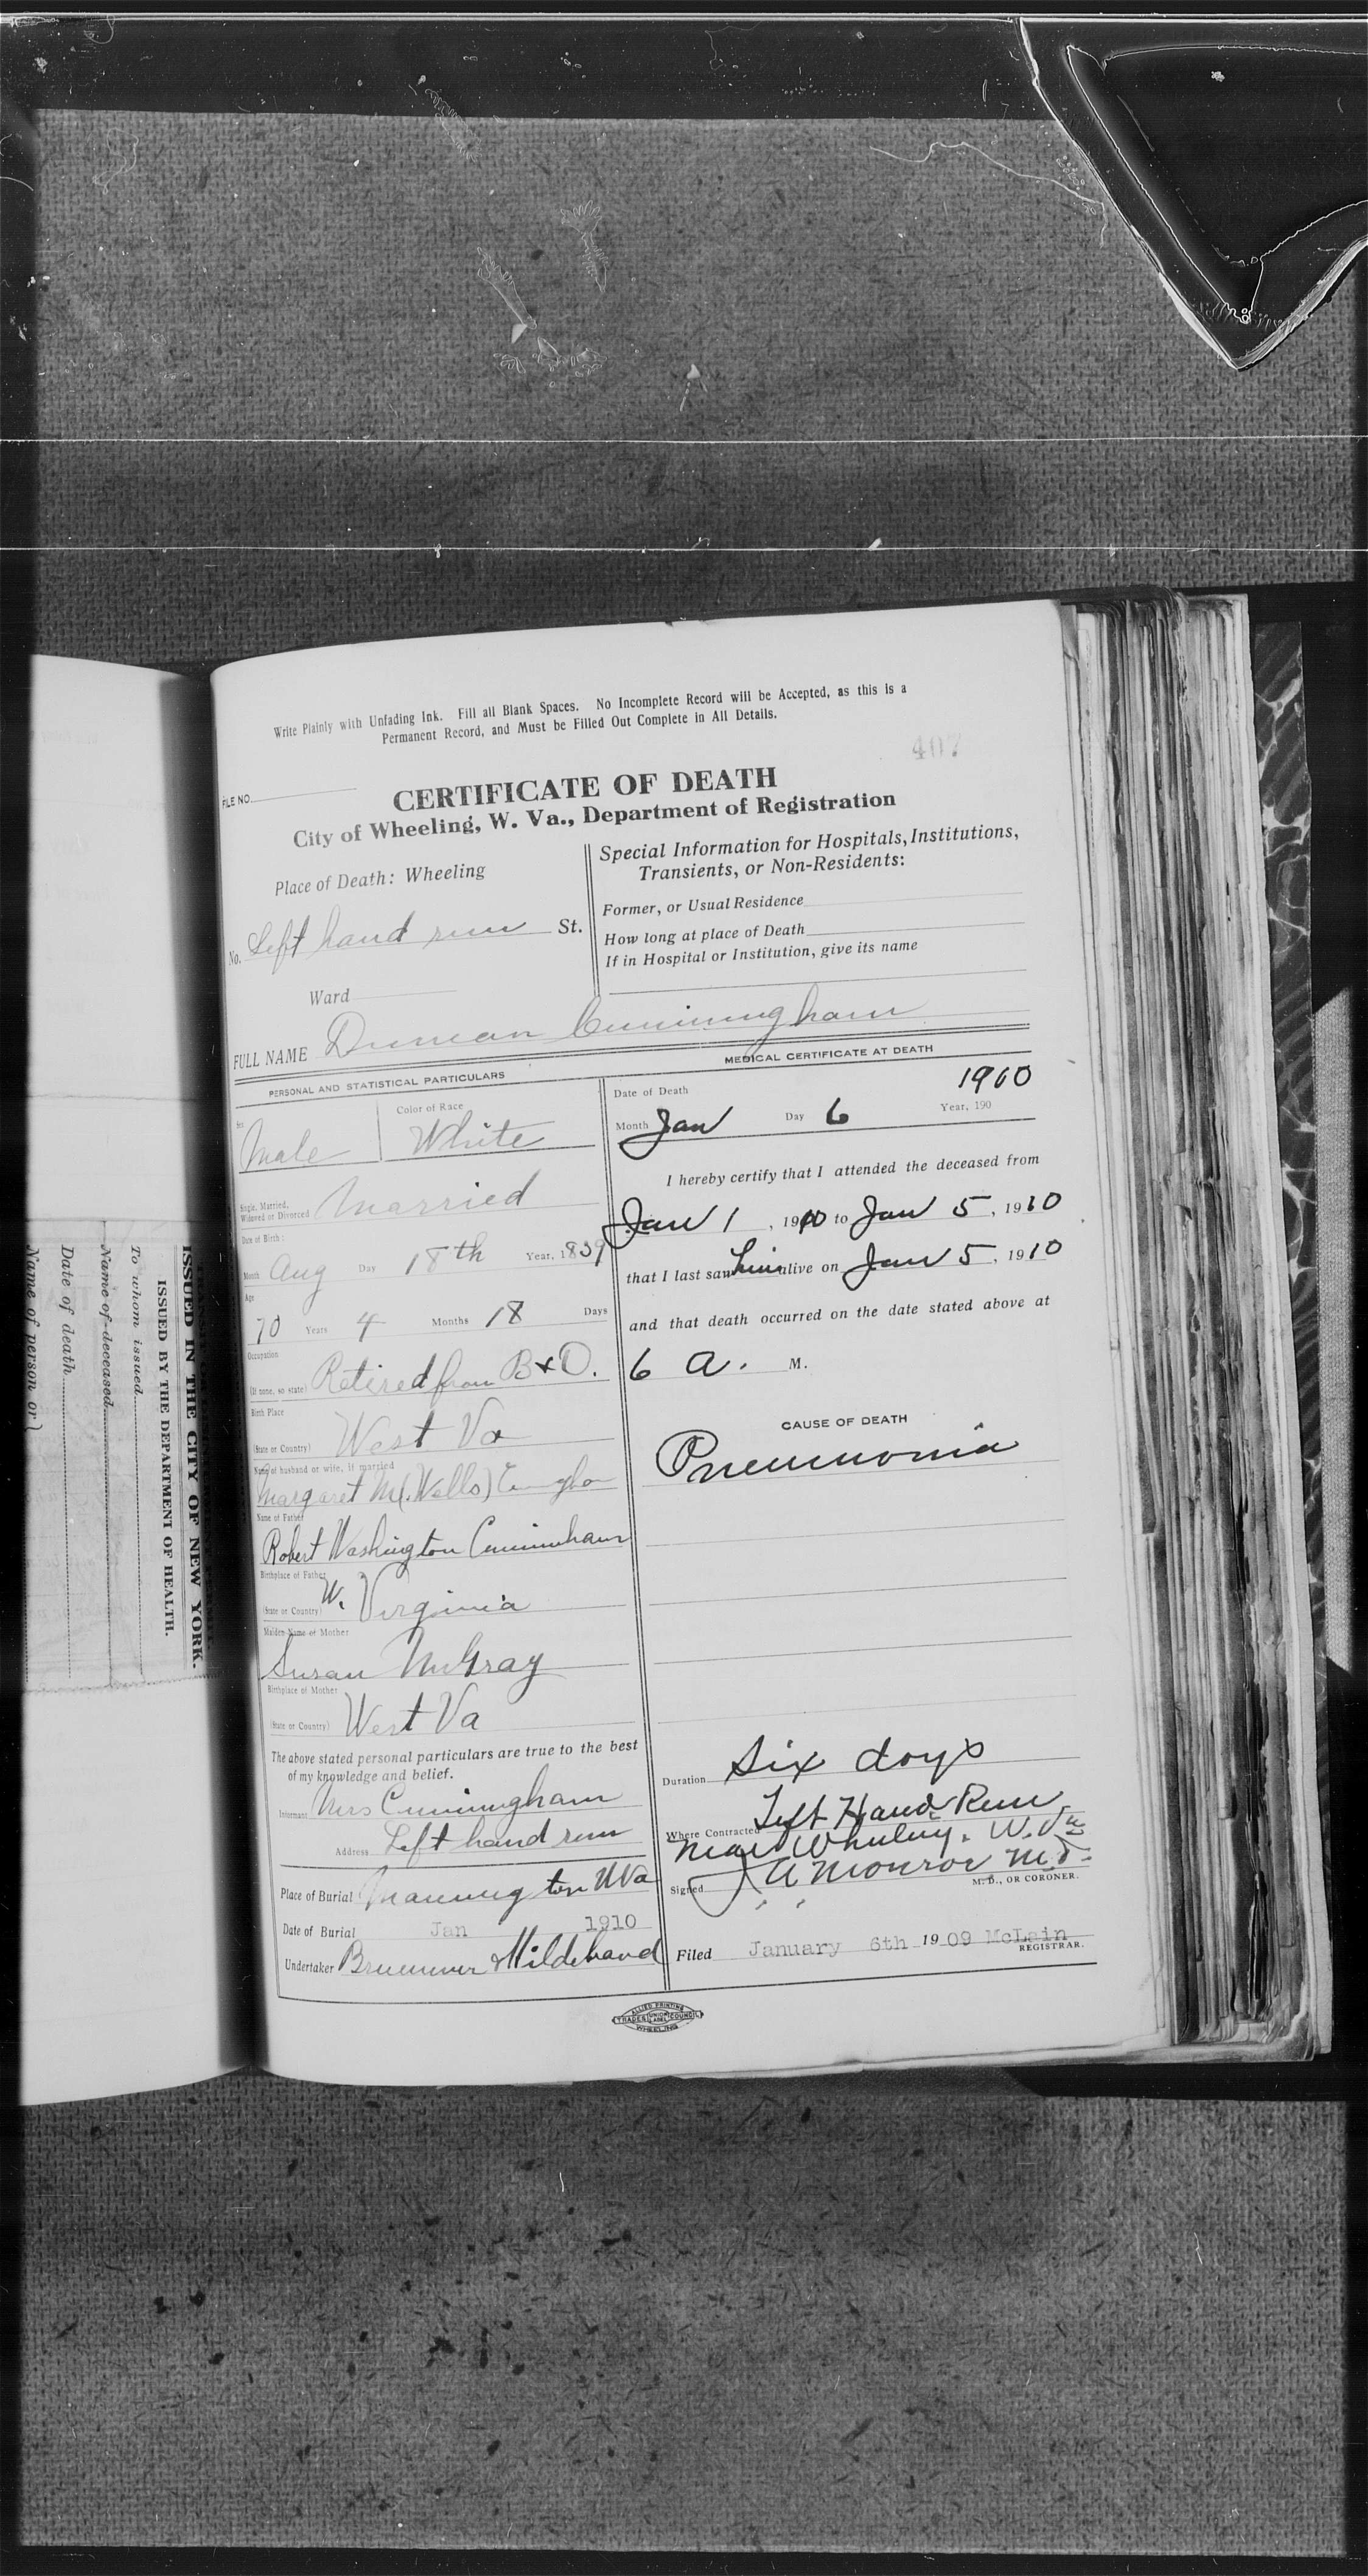 Write Plainly with Unfading Ink. Fill all Blank Spaces. No Incomplete Record will be Accepted, as this is a
Permanent Record, and Must be Filled Out Complete in All Details.
407
FILE NO.
CERTIFICATE OF DEATH
City of Wheeling, W. Va., Department of Registration
Place of Death: Wheeling
No. Left hand run St.
Ward
Special Information for Hospitals, Institutions,
Transients, or Non-Residents:
Former, or Usual Residence
How long at place of Death
If in Hospital or Institution, give its name
FULL NAME Duncan Cunningham
PERSONAL AND STATISTICAL PARTICULARS
Color of Race
Male White
Single, Married,
Widowed or Divorced Married
Date of Birth:
Month Aug Day 18th Year, 1839
Age
70 Years 4 Months 18 Days
Occupation
(If none, so state) Retired from B & O.
Birth Place
(State or Country) West Va
Name of husband or wife, if married
Margaret M (Wells)
Name of Father
Robert Washington Cunninham
Birthplace of Father
(State or Country) W. Virginia
Maiden Name of Mother
Susan McGray
Birthplace of Mother
(State or Country) West Va
The above stated personal particulars are true to the best
of my knowledge and belief.
Informant Mrs Cunningham
Address Left hand run
Place of Burial Mannington W Va
Date of Burial Jan 1910
Undertaker Bruemmer & Hildebrand
MEDICAL CERTIFICATE AT DEATH
Date of Death
1910
Month Jan Day 6 Year, 190
I hereby certify that I attended the deceased from
Jan 1, 1910 to Jan 5, 1910
that I last saw him alive on Jan 5, 1910
and that death occurred on the date stated above at
6 a. M.
CAUSE OF DEATH
Pneumonia
Duration Six days
Where Contracted Left Hand Run
near Wheeling, W. Va
Signed J A Monroe M.D.
M. D., OR CORONER.
Filed January 6th 1909 McLain
REGISTRAR.
ALLIED PRINTING
TRADES UNION LABEL COUNCIL
WHEELING
ISSUED IN THE CITY OF NEW YORK.
ISSUED BY THE DEPARTMENT OF HEALTH.
To whom issued
Name of deceased
Date of death
Name of person or